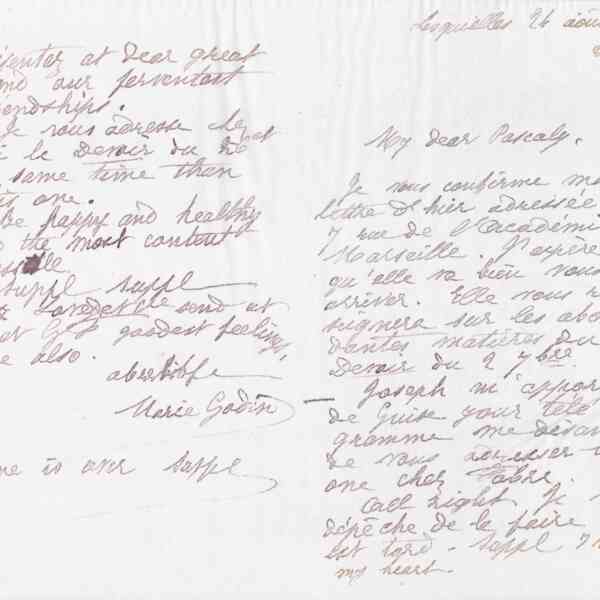 senter at dear great
and our ferventest
iendships.
Je vous adresse che
i le Devoir du
same time than
is one.
Be happy and healthy
the most content
suppl suppl
send at
goodest feelings,
e also.
Marie Godin
me is over suppl
Lesquielles 26 aoû
My dear Pascaly.
Je vous confirme ma
lettre d'hier adressée
7 rue de l'Académi
Marseille. J'espère
qu'elle va bien vous
arriver. Elle vous r
seignera sur les abo
dantes matières du
Devoir du 2 7bre
Joseph m'appor
de Guise your télé
gramme me disan
de vous adresser
one chez Fabre.
All right. Je
dépêche de le faire
est tard - suppl
my heart.